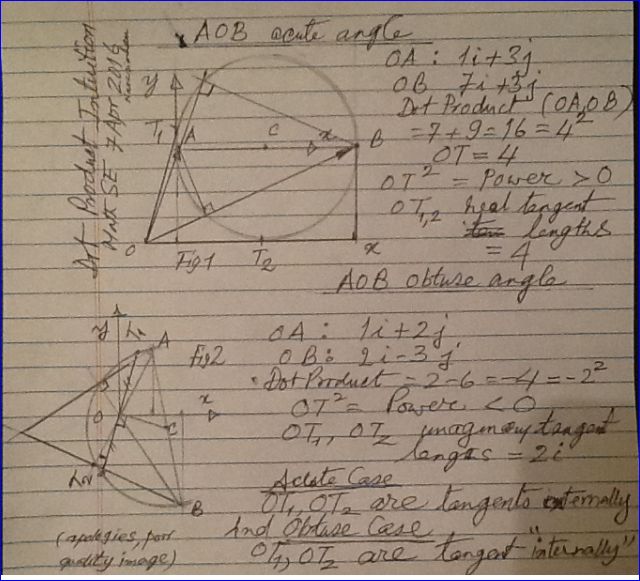 Dot Product Intuition
Math SE 7 Apr 2016
AOB acute angle
OA : 1i+3j
OB 7i+3j
Dot Product (OA,OB)
=7+9=16=4²
OT=4
OT² = Power >0
OT1,2 real tangent
lengths
= 4
y
T1
A
C
x
B
O
Fig1
T2
x
AOB Obtuse angle
y
T1
A
Fig2
O
x
C
B
OA : 1i+2j
OB : 2i-3j
Dot Product = 2-6 = -4 = -2²
OT² = Power <0
OT1, OT2 imaginary tangent
lengths = 2i
Acute Case
OT1, OT2 are tangents externally
And Obtuse Case
OT1, OT2 are tangent "internally"
(apologies, poor
quality image)